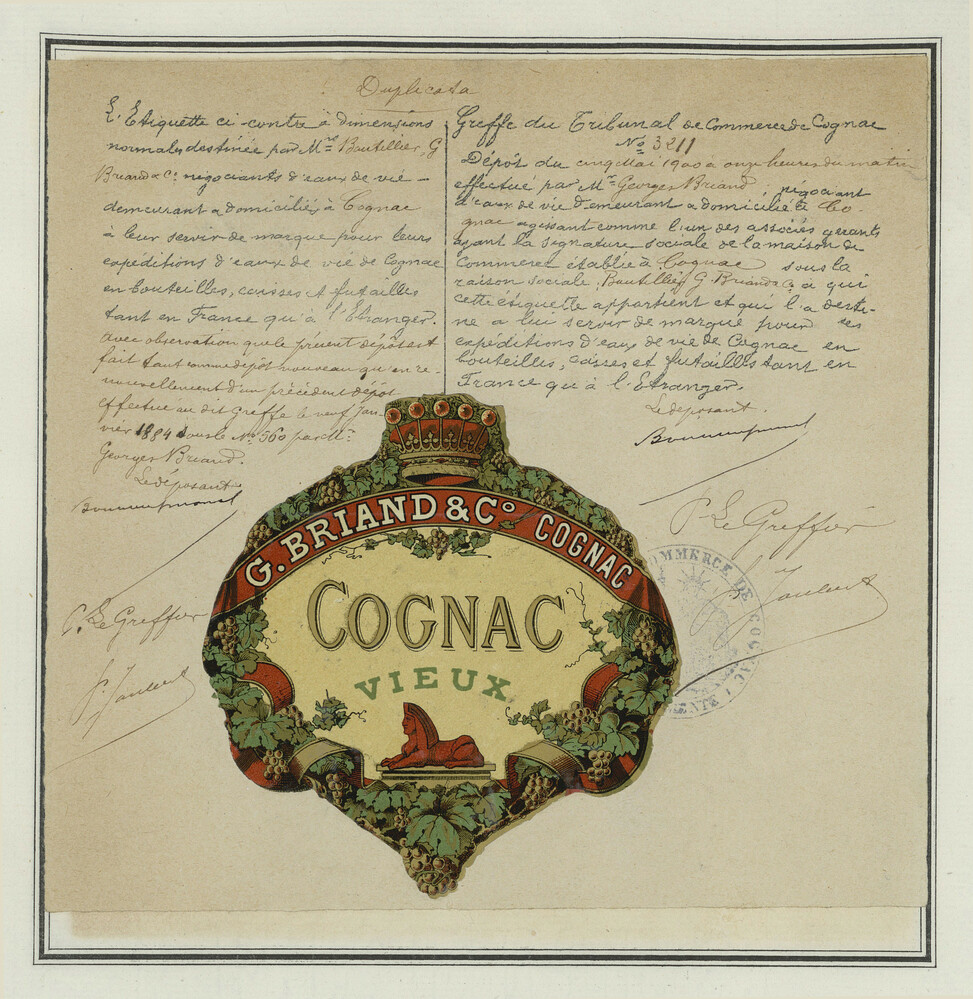 Duplicata
L'Etiquette ci-contre à dimensions
normales destinée par Mrs Boutellier, G
Briand & Co négociants d'eaux de vie -
demeurant & domiciliés à Cognac
à leur servir de marque pour leurs
expéditions d'eaux de vie de Cognac
en bouteilles, caisses et futailles
tant en France qu'à l'Etranger.
avec observation que le présent dépôt est
fait tant comme dépôt nouveau qu'en re-
nouvellement d'un précédent dépôt
effectué au dit Greffe le neuf Jan-
vier 1884 sous le No 560 par Mr
Georges Briand.
Le déposant
P. Le Greffier
Greffe du Tribunal de Commerce de Cognac
No 3211
Dépôt du cinq Mai 1900 à onze heures du matin
effectué par Mr Georges Briand, négociant
d'eaux de vie demeurant & domicilié à Co-
gnac agissant comme l'un des associés gérants
ayant la signature sociale de la maison de
Commerce établie à Cognac sous la
raison sociale Boutellier G. Briand & Co à qui
cette étiquette appartient et qui l'a desti-
née à lui servir de marque pour ses
expéditions d'eaux de vie de Cognac en
bouteilles, caisses et futailles tant en
France qu'à l'Etranger.
Le déposant.
P. Le Greffier
COMMERCE DE COGNAC
G. BRIAND & Co COGNAC
COGNAC
VIEUX